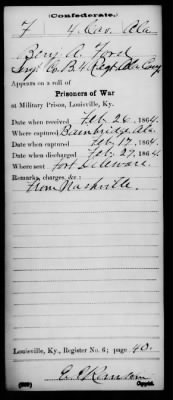 (Confederate.)
F 4 Cav. Ala
Benj. A. Ford
Co. B. 4 Regt Ala Cavy
Appears on a roll of
Prisoners of War
at Military Prison, Louisville, Ky.
Date when received Feb. 26, 1864.
Where captured Bainbridge Ala
Date when captured Feb 17, 1864.
Date when discharged Feb. 29, 1864.
Where sent Fort Delaware.
Remarks, charges, &c.:
From Nashville.
Louisville, Ky., Register No. 6; page 40.
Copyist.